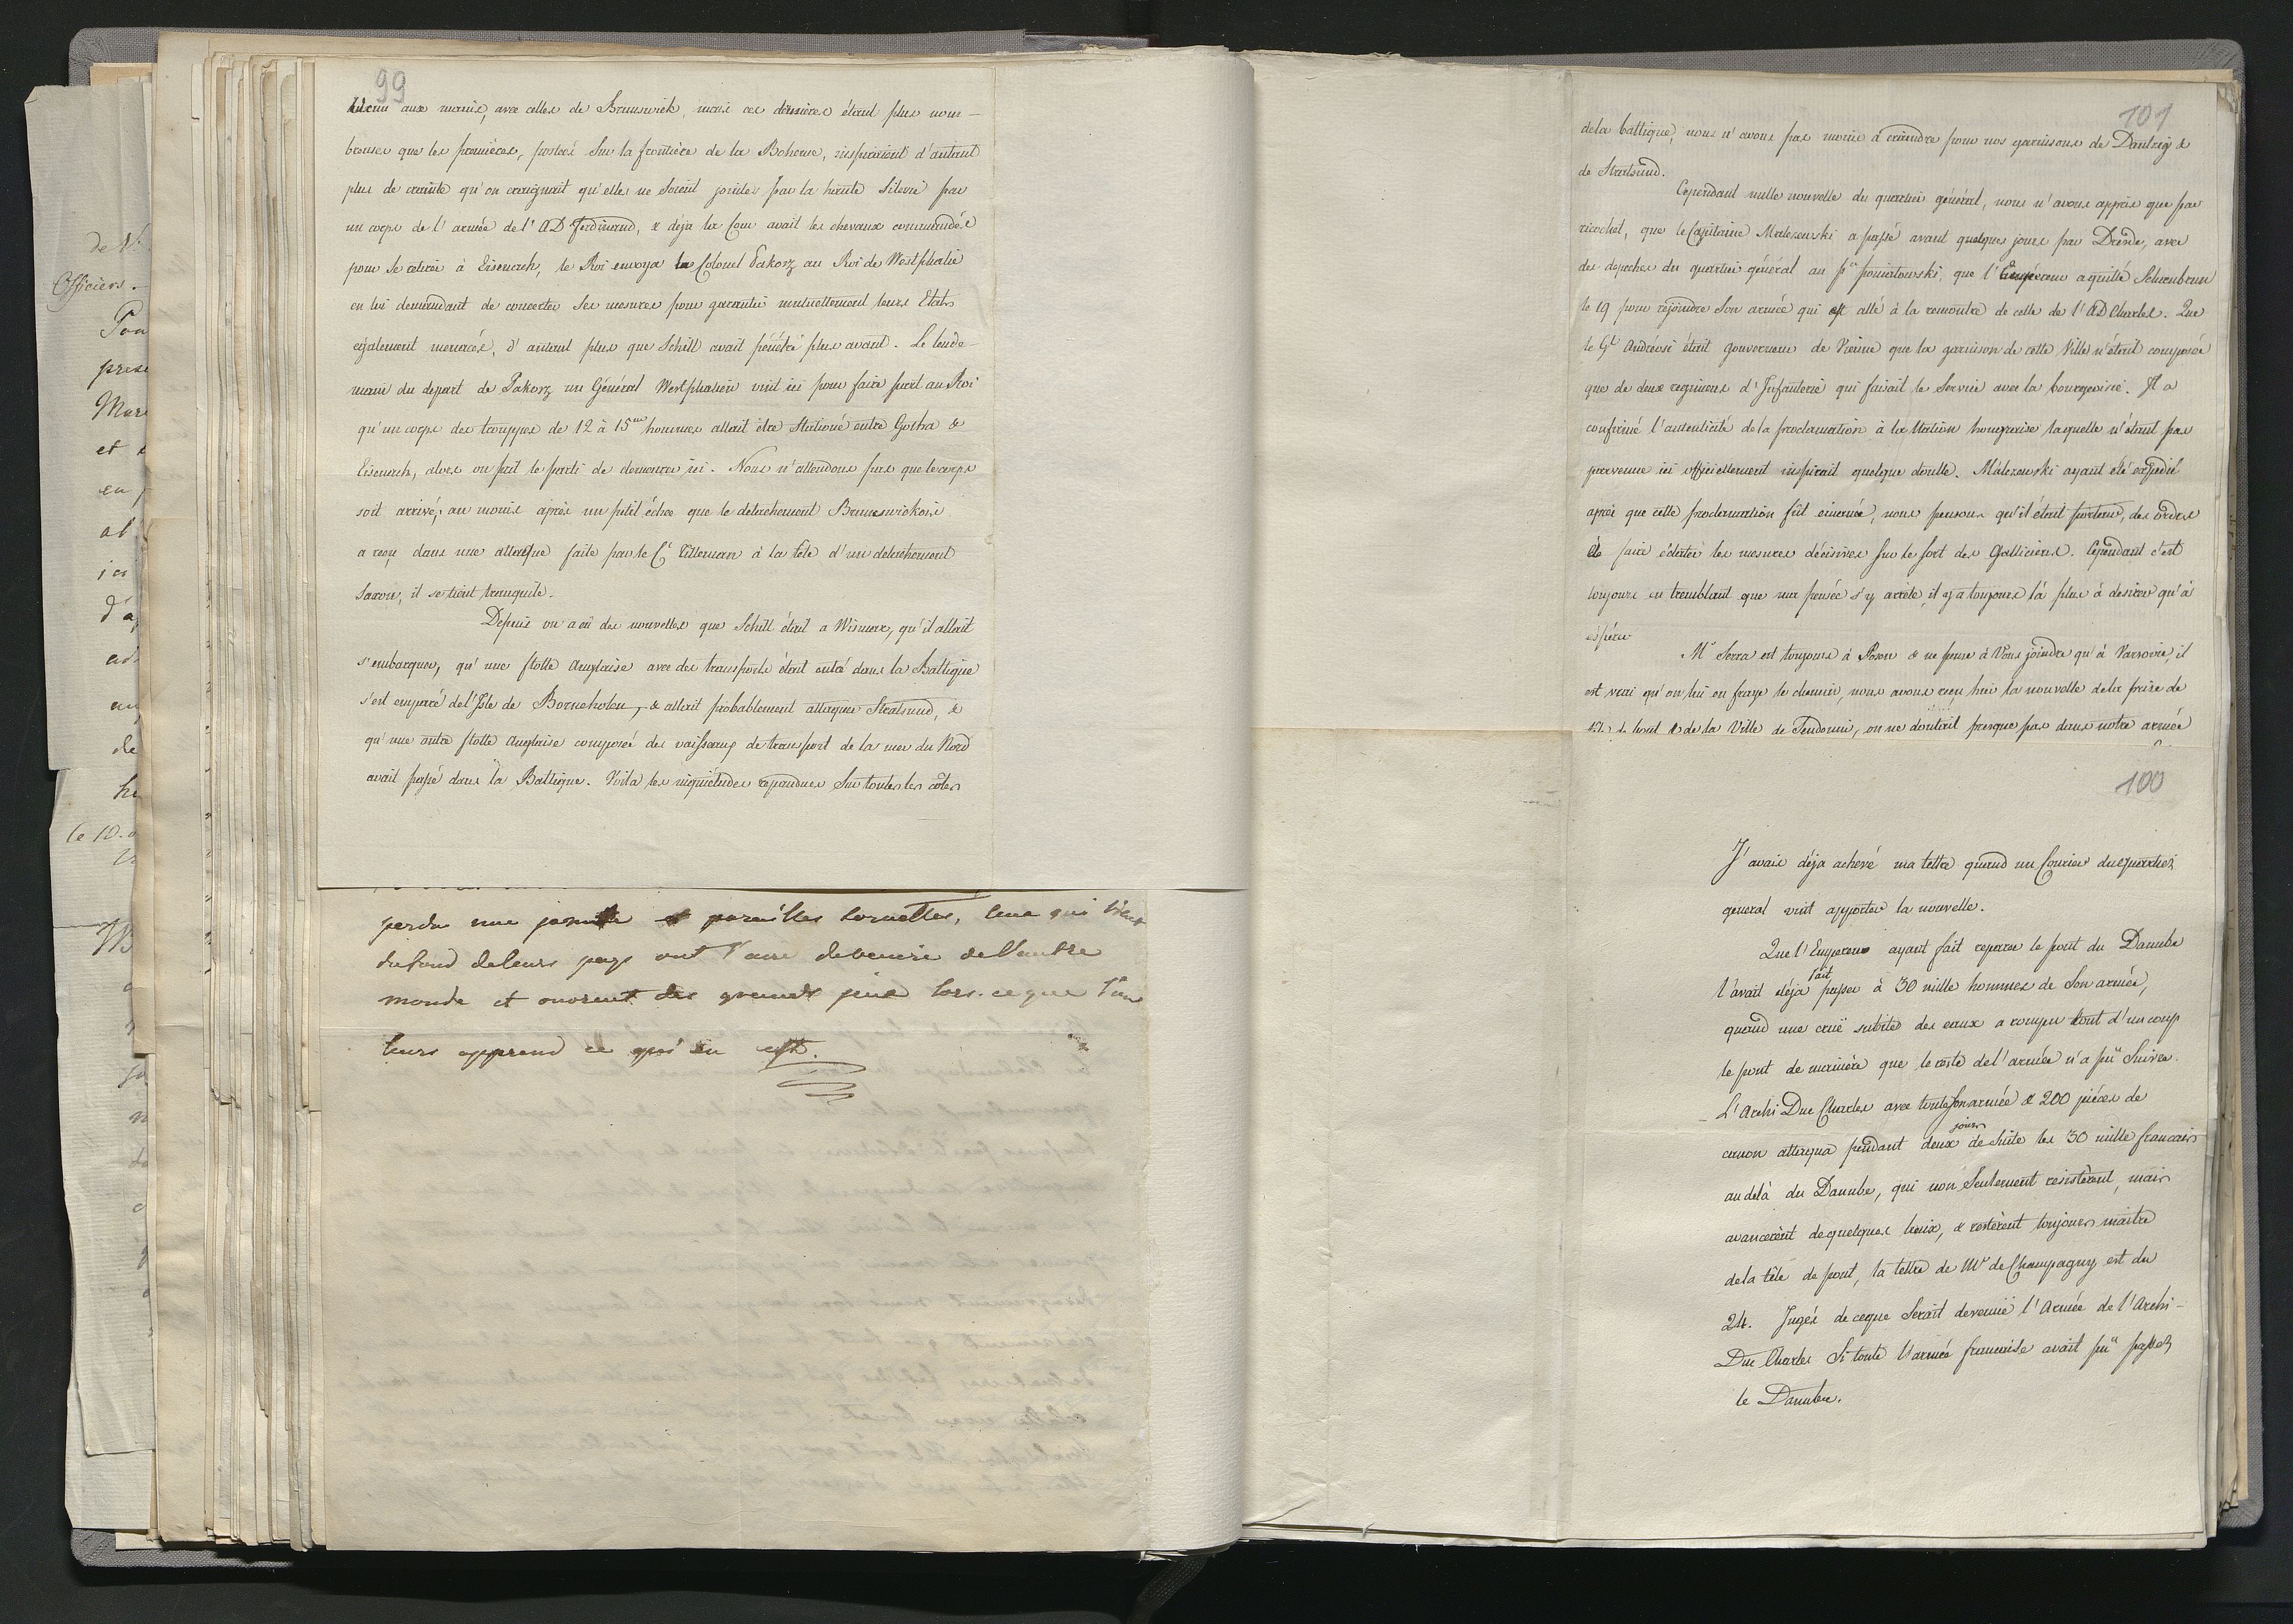 99
venu aux mains, avec celles de Brunswick, mais ces dernières étant plus nom-
breuses que les premières, postées Sur la frontière de la Boheme, inspiraient d'autant
plus de crainte qu'on craignait qu'elles ne Soient jointes par la haute Silesie par
un corps de l'armée de l'AD Ferdinand, & déja la Cour avait les chevaux commandés
pour Se retirer à Eisenach, le Roi envoya le Colonel Pakosz au Roi de Westphalie
en lui demandant de concerter Ses mesures pour garantir mutuellement leurs Etats
egalement menacés, d'autant plus que Schill avait pénétré plus avant. Le lende-
main du depart de Pakosz un Général Westphalien vint ici pour faire part au Roi
qu'un corps des trouppes de 12 à 15me hommes allait etre Stationé entre Gotha &
Eisenach, alors on prit le parti de demeurer ici. Nous n'attendons pas que le corps
soit arrivé, au moins après un petit échec que le detachement Brunswickois
a reçu dans une attaque faite par le Cl Tilleman à la tête d'un detachement
Saxon, il se tient tranquile.
Depuis on a eû des nouvelles que Schill était a Wismar, qu'il allait
s'embarquer, qu'une flotte Anglaise avec des transports était entré dans la Baltique
s'est emparé de l'Isle de Borneholm, & allait probablement attaquer Stralsund, &
qu'une autre flotte Anglaise composée des vaisseaux de transport de la mer du Nord
avait passé dans la Baltique. Voila les inquiétudes repandues Sur toutes les côtes
perdu une et pareilles sornettes, ceux qui vient
du fond de leurs pays ont l'aire de venire de l'autre
monde et ouvrent des grands jeux lors-ce que l'on
leurs apprend ce qui en est.
101
de la baltique, nous n'avons pas moins à craindre pour nos garnisons de Dantzig &
de Stralsund.
Cependant nulle nouvelle du quartier général, nous n'avons appris que par
ricochet, que le Capitaine Malezewski a passé avant quelques jours par Dresde, avec
des depeches du quartier général au pce poniatowski, que l'Empereur a quitté Schenbrun
le 19 pour rejoindre Son armée qui est allé à la rencontre de celle de l'AD Charles. Que
le Gl Andréosi était gouverneur de Vienne que la garnison de cette Ville n'était composée
que de deux regimens d'Infanterie qui faisait le Service avec la bourgeoisie. Il a
confirmé l'autenticité de la proclamation à la Nation hongroise laquelle n'étant pas
parvenue ici officiellement inspirait quelque doutte. Malezewski ayant été expedié
après que cette proclamation fût émanée, nous pensons qu'il était porteur, des ordres
de faire éclater les mesures décisives Sur le Sort des Galliciens. Cependant c'est
toujours en tremblant que ma pensée s'y arrète, il y a toujours là plus à desirer qu'à
espérer
Mr Serra est toujours à Posen & ne pense à Vous joindre qu'à Varsovie, il
est vrai qu'on lui en fraye le chemin, nous avons reçu hier la nouvelle de la prise de
& de la Ville de Sendomir, on ne doutait presque pas dans notre armée
100
J'avais déja achevé ma lettre quand un Courier du quartier
general vint apporter la nouvelle.
Que l'Empereur ayant fait reparer le pont du Danube
l'avait déja fait passer à 30 mille hommes de Son armée,
quand une crüe subite des eaux a rompu tout d'un coup
le pont de manière que le reste de l'armée n'a pû Suivre.
L'Archi Duc Charles avec toute Son armée & 200 pièces de
canon attaqua pendant deux jours de Suite les 30 mille francais
au delà du Danube, qui non Seulement resistèrent, mais
avancèrent de quelques lieux, & restèrent toujours maitre
de la tête de pont, la lettre de Mr de Champagny est du
24. Jugés de ceque Serait devenüe l'Armée de l'Archi-
Duc Charles Si toute l'armée francaise avait pû passer
le Danube.